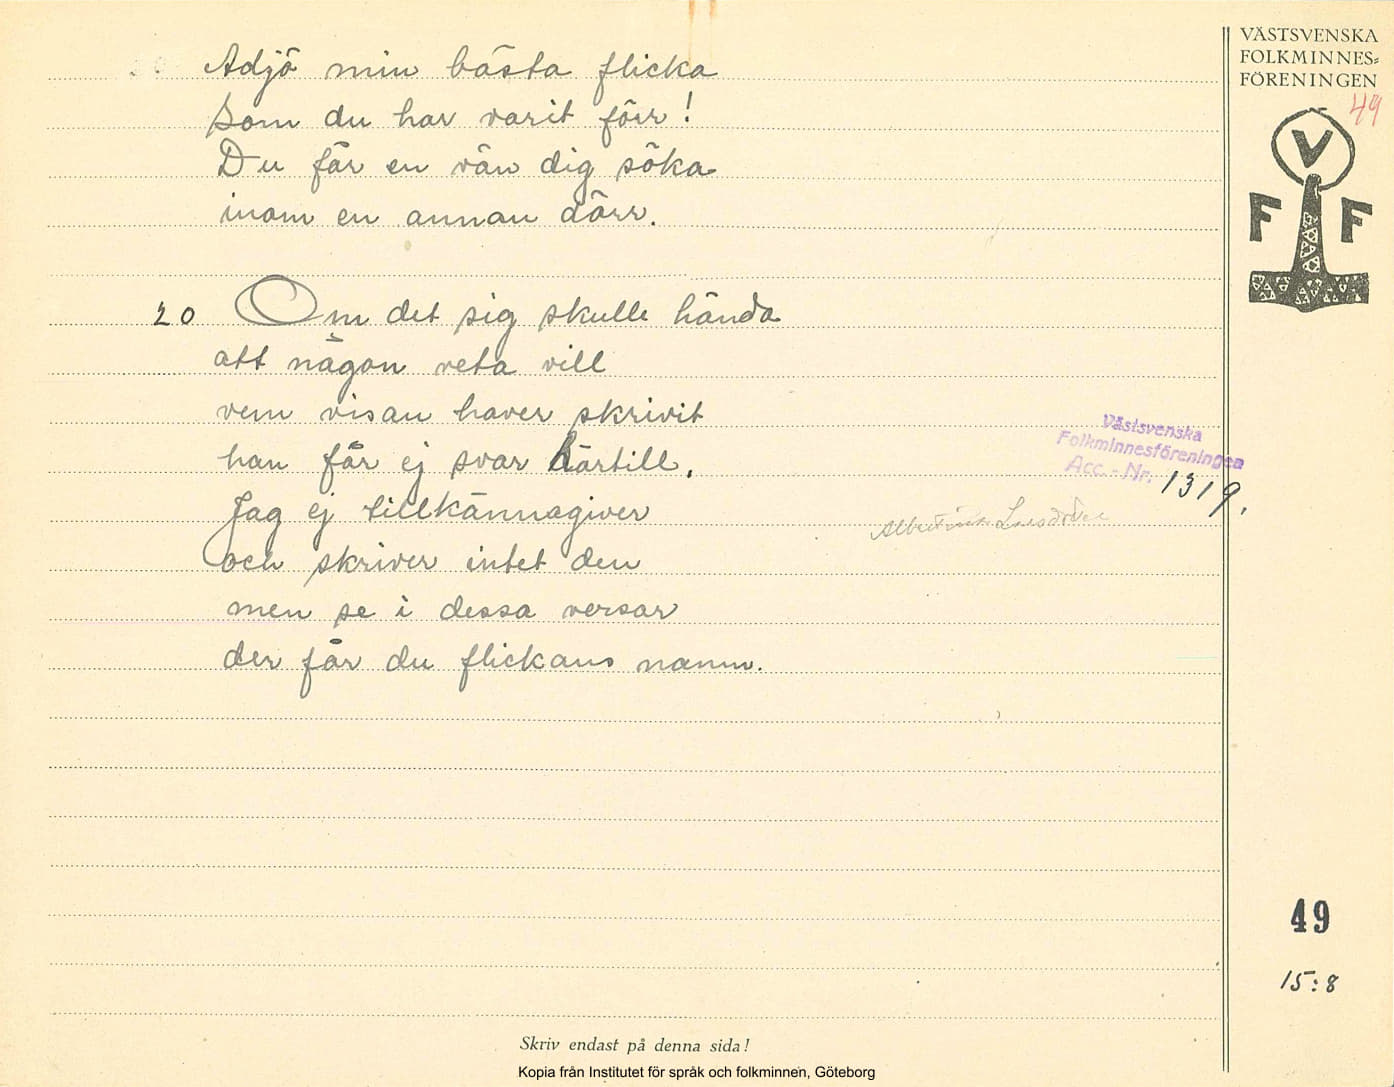 VÄSTSVENSKA
FOLKMINNES=
FÖRENINGEN
49
V
F F
Adjö min bästa flicka
Som du har varit förr!
Du får en vän dig söka
inom en annan dörr.
20 Om det sig skulle hända
att någon veta vill
vem visan haver skrivit
han får ej svar härtill.
Jag ej tillkännagiver
och skriver intet den
men se i dessa versar
der får du flickans namn.
Västsvenska
Folkminnesföreningen
Acc.-Nr. 1319.
49
15:8
Skriv endast på denna sida!
Kopia från Institutet för språk och folkminnen, Göteborg